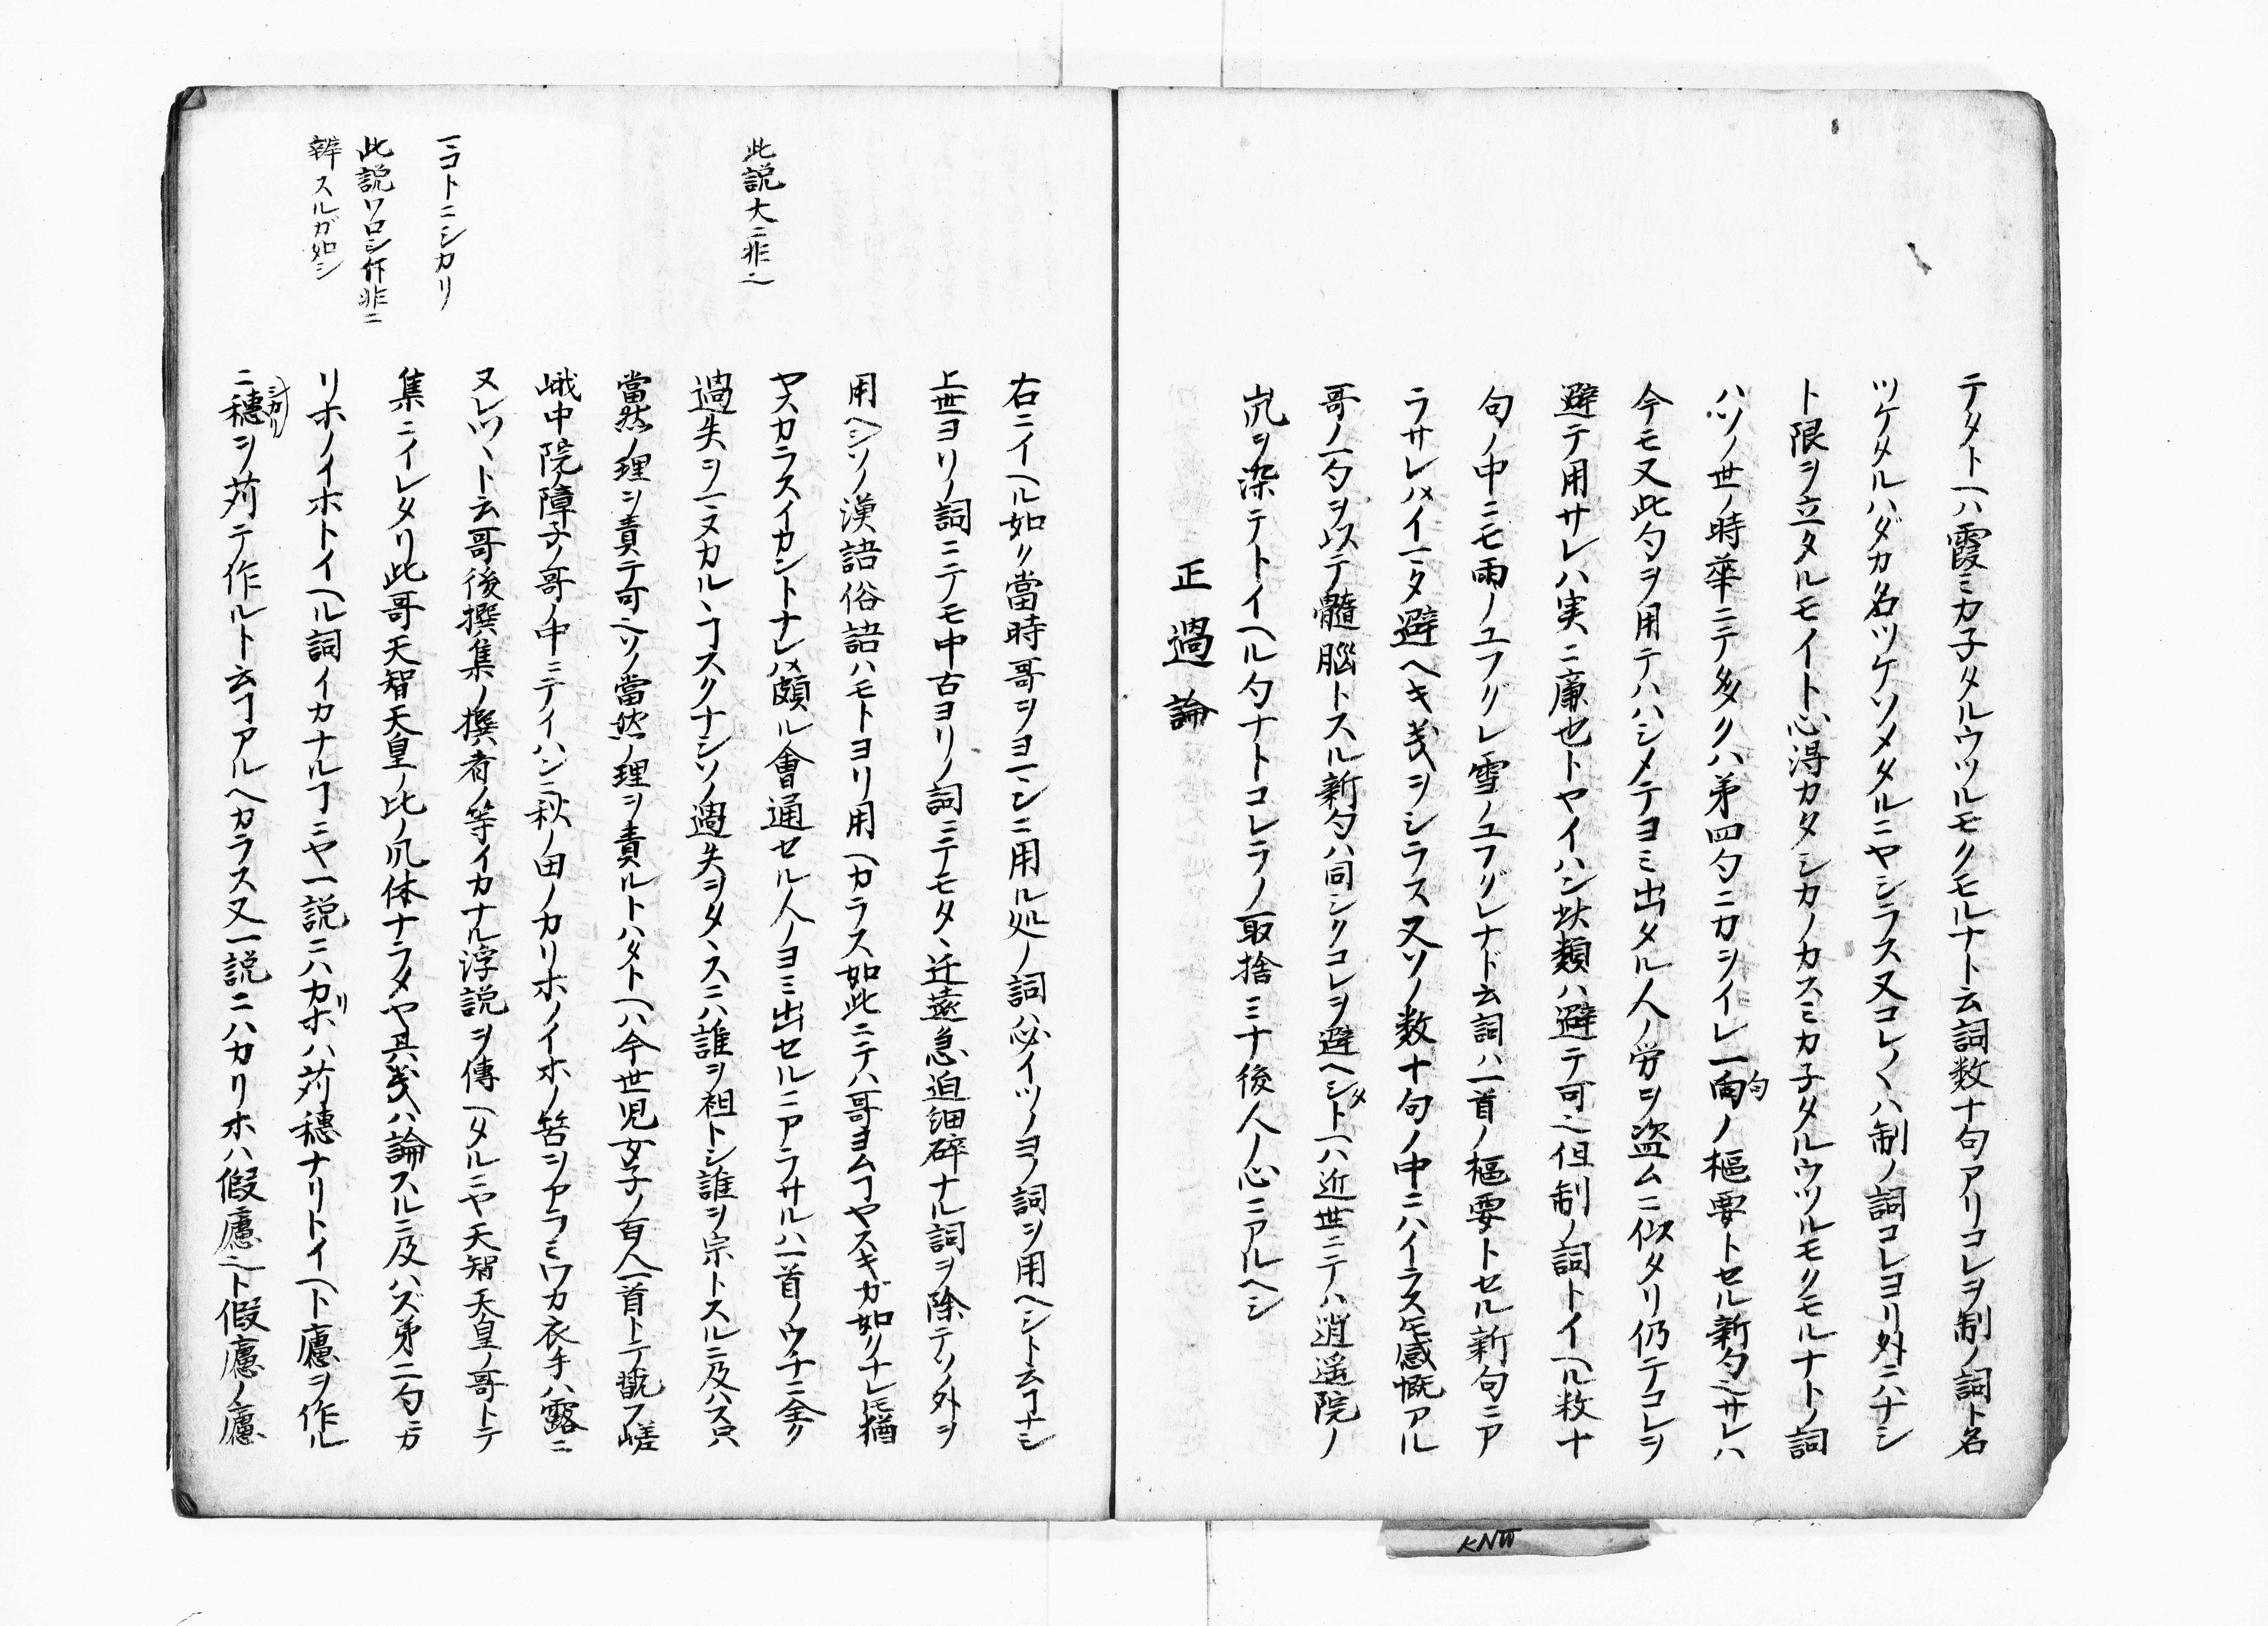 テタトヘハ霞ミカ子タルウツルモクモルナト云詞数十句アリコレヲ制ノ詞ト名
ツケタルハダカ名ツケソメタルニヤシラス又コレ〱ハ制ノ詞コレヨリ外ニハナシ
ト限ヲ立タルモイト心得カタシカノカスミカ子タルウツルモクモルナトノ詞
ハソノ世ノ時華ニテ多クハ弟四句ニカシイレ一首ノ樞要トセル新句也サレハ
今モ又此句ヲ用テハハシメテヨミ出タル人ノ労ヲ盗ムニ似タリ仍テコレヲ
避テ用サレハ実ニ廉也トヤイハン此類ハ避テ可也但制ノ詞トイヘル数十
句ノ中ニモ雨ノユフグレ雪ノユフグレナド云詞ハ一首ノ樞要トセル新句ニア
ラサレハイマタ避ヘキ義ヲシラス又ソノ数十句ノ中ニハイラス𪜈感慨アル
哥ノ一句ヲ以テ髓腦トスル新句ハ同シクコレヲ避ヘシタトヘハ近世ニテハ逍遥院ノ
凩ヲ染テトイヘル句ナトコレラノ取捨ミナ後人ノ心ニアルヘシ
正過論
右ニイヘル如ク當時哥ヲヨマンニ用ル処ノ詞ハ必イツノヨノ詞ヲ用ヘシト云ヿナシ
上世ヨリノ詞ニテモ中古ヨリノ詞ニテモタヽ迂遠急迫細碎ナル詞ヲ除テソノ外ヲ
用ヘシソノ漢語俗語ハモトヨリ用ヘカラス如此ニテハ哥ヨムヿヤスキガ如クナレ𪜈猶
ヤスカラスイカントナレハ頗ル會通セル人ノヨミ出セルニアラサルハ一首ノウチニ全ク
過失ヲマヌカルヽヿスクナシソノ過失ヲタヽスニハ誰ヲ祖トシ誰ヲ宗トスルニ及ハス只
當然ノ理ヲ責テ可也ソノ當然ノ理ヲ責ルトハタトヘハ今世児女子ノ百人一首トテ翫フ嵯
峨中院障子ノ哥ノ中ニテイハンニ秋ノ田ノカリホノイホノ苫ヲアラミワカ衣手ハ露ニ
ヌレツヽト云哥後撰集ノ撰者ノ等イカナル浮説ヲ傳ヘタルニヤ天智天皇ノ哥トテ
集ニイレタリ此哥天智天皇ノ比ノ凡体ナラタヤ其義ハ論スルニ及ハズ弟二句ニカ
リホノイホトイヘル詞イカナルヿニヤ一説ニハカリホハ苅穗ナリトイヘト廬ヲ作ル
ニ穗ヲ苅テ作ルト云ヿアルヘカラス又一説ニハカリホハ假廬也ト假廬ノ廬
此説大ニ非也
マコトニシカリ
此説ワロシ作非ニ
辨スルガ如シ
KNW